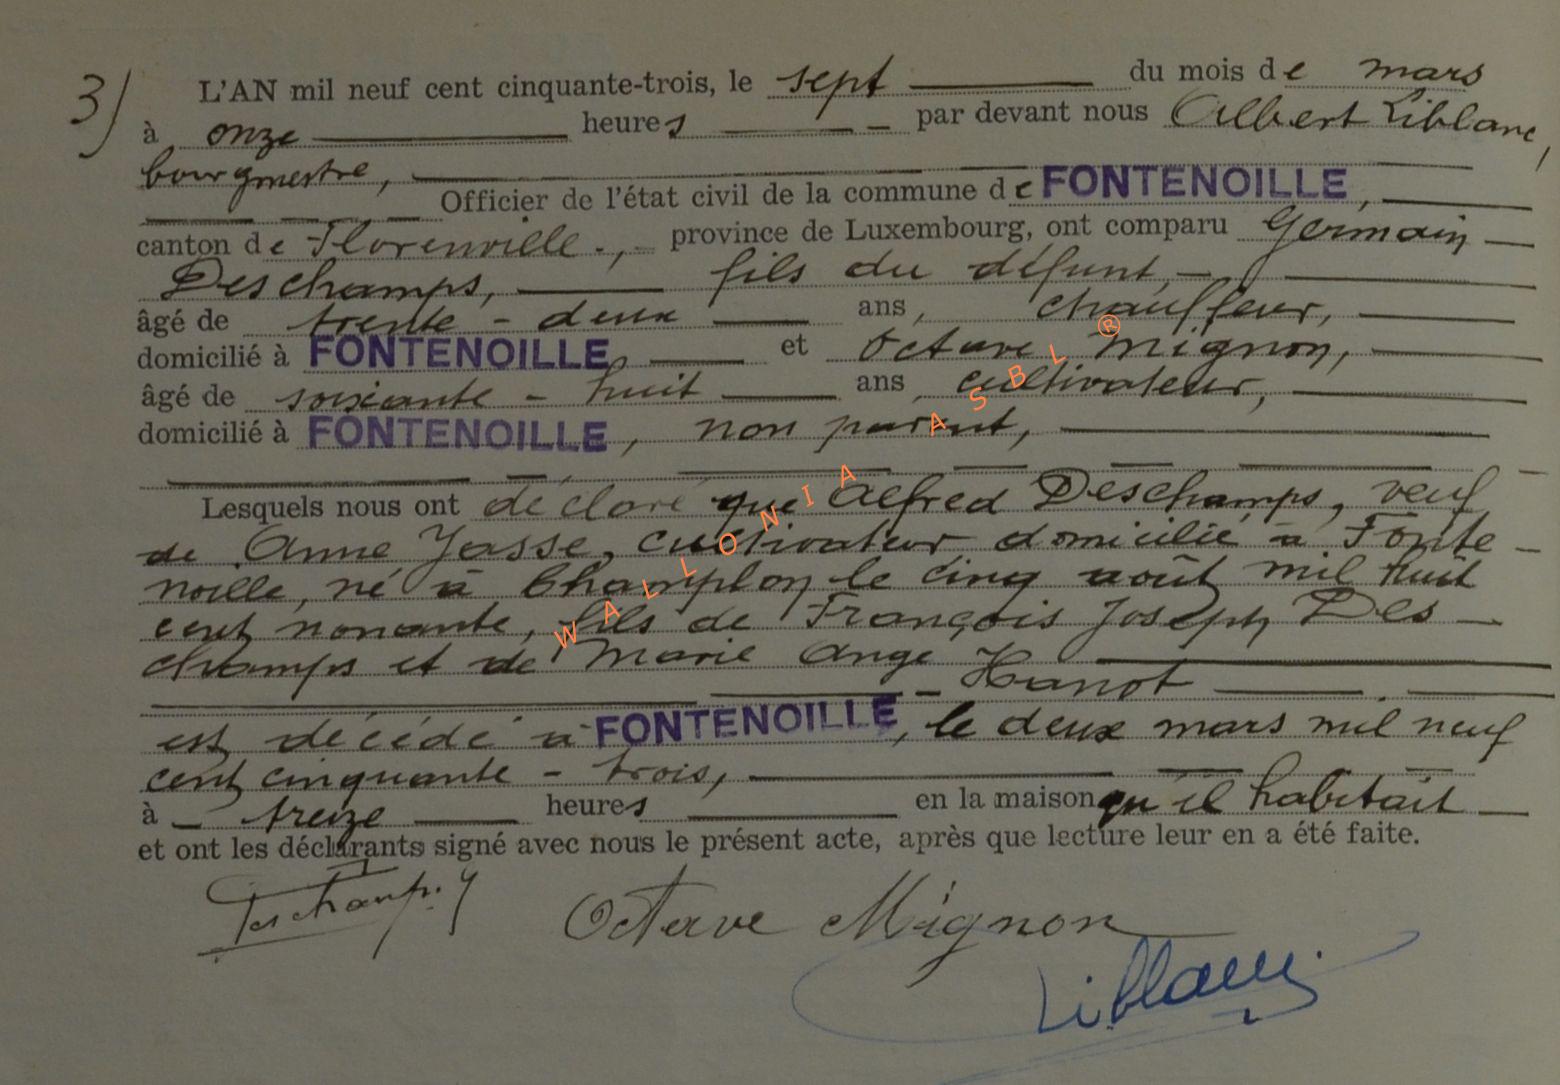 3) L'AN mil neuf cent cinquante-trois, le sept du mois de mars
à onze heures par devant nous Albert Liblanc,
bourgmestre,
Officier de l'état civil de la commune de FONTENOILLE,
canton de Florenville, province de Luxembourg, ont comparu Germain
Deschamps, fils du défunt,
âgé de trente-deux ans, chauffeur,
domicilié à FONTENOILLE et Octave Mignon,
âgé de soixante-huit ans, cultivateur,
domicilié à FONTENOILLE, non parent,
Lesquels nous ont déclaré que Alfred Deschamps, veuf
de Anne Jasse, cultivateur domicilié à Fonte-
noille, né à Champlon le cinq août mil huit
cent nonante, fils de François Joseph Des-
champs et de Marie Ange
Hanot
est décédé à FONTENOILLE, le deux mars mil neuf
cent cinquante-trois,
à treize heures en la maison qu'il habitait
et ont les déclarants signé avec nous le présent acte, après que lecture leur en a été faite.
Deschamps. G
Octave Mignon
Liblanc
WALLONIA ASBL ®